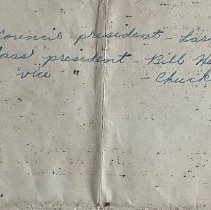 Council president - Las
Class president - Bill He
vice " - Chuck